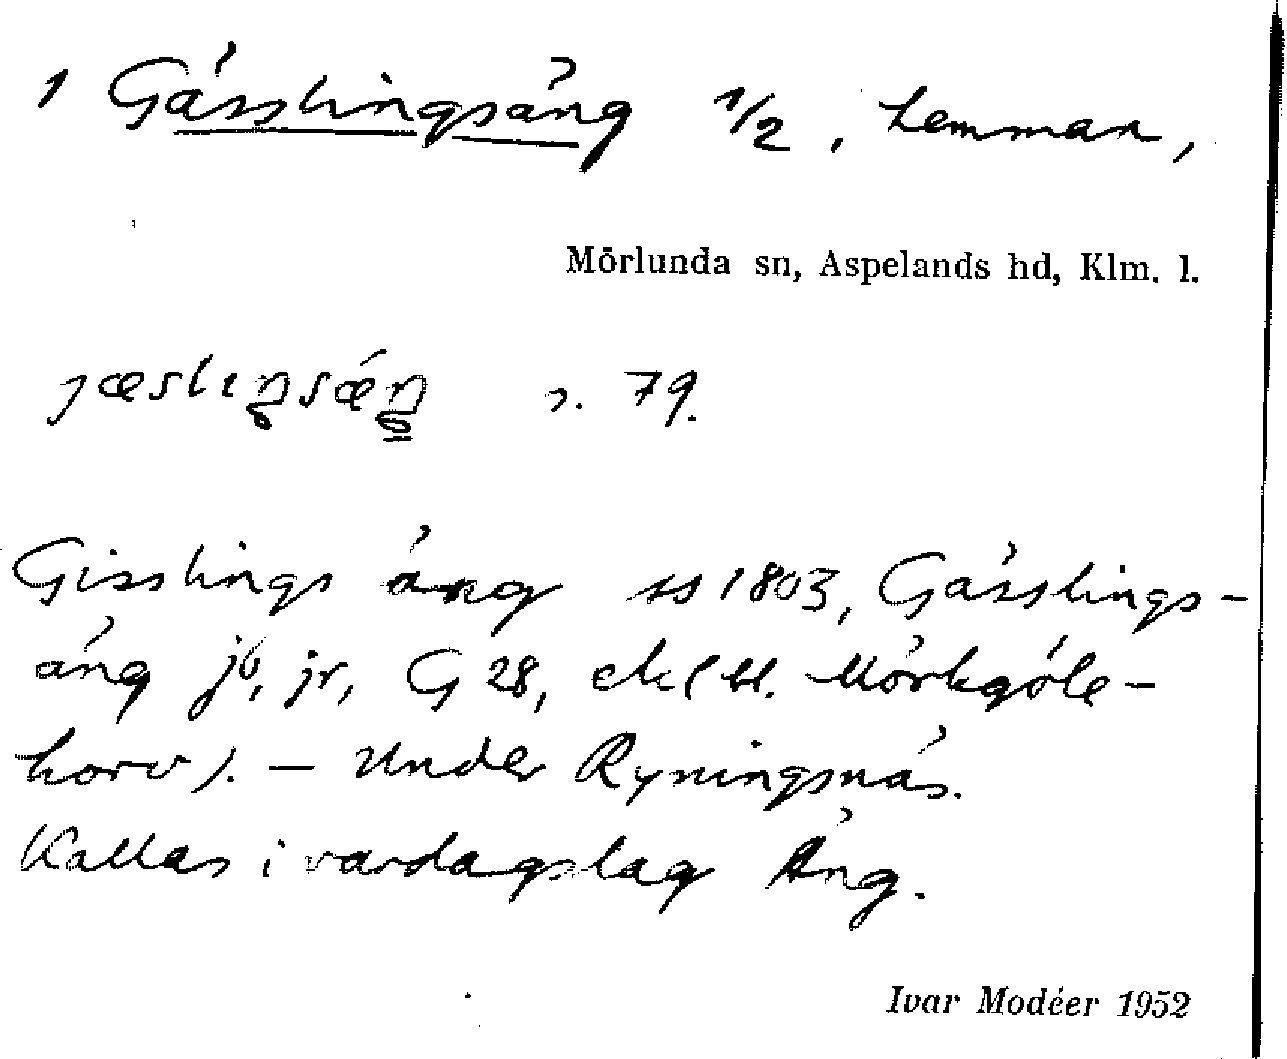 1 Gässlingsäng 1/2, hemman,
Mörlunda sn, Aspelands hd, Klm. l.
79.
Gisslings äng ss 1803, Gässlings-
äng jb, jr, G 28, ek (bl. Mörkgöle-
horv). – Under Ryningsnäs.
Kallas i vardagslag Äng.
Ivar Modéer 1952